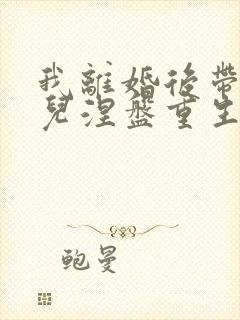 我離婚後帶
兒涅盤重生
鲍曼